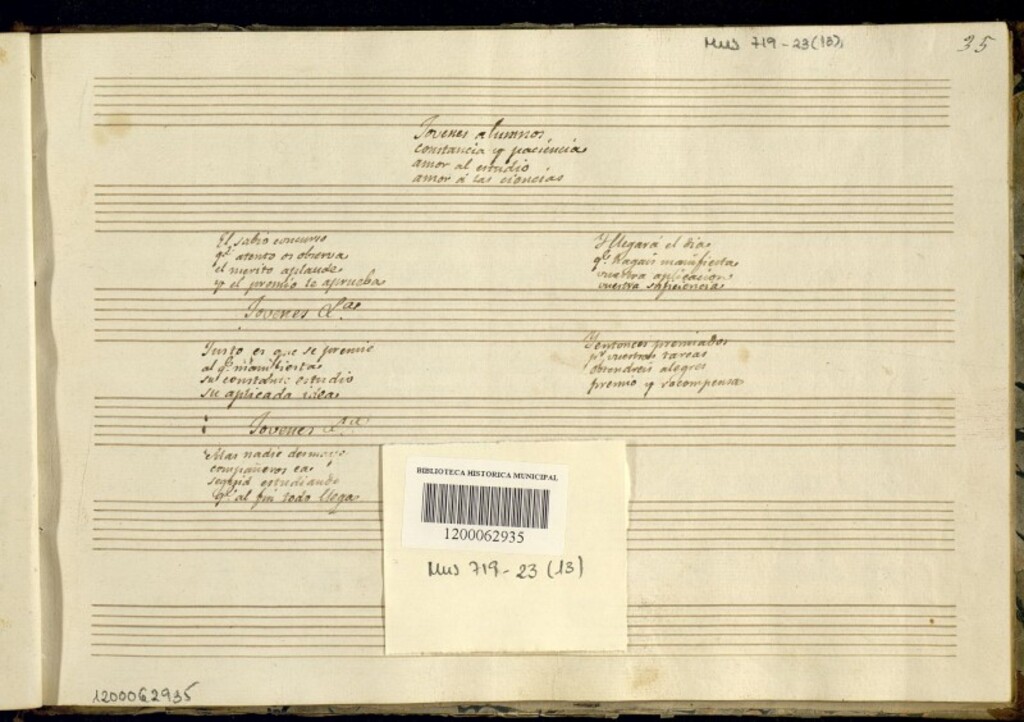 Mus 719-23(13)
35
Jovenes alumnos
constancia y paciencia
amor al estudio
amor á las ciencias
El sabio concurso
qe. atento os observa
el merito aplaude
y el premio te aprueba
Jovenes &.a
Justo es que se premie
al qe. manifiesta
su constante estudio
su aplicada idea
Jovenes &.a
Mas nadie desmaye
compañeros ea
seguid estudiando
qe. al fin todo llega
Y llegará el dia
qe. hagais manifiesta
vuestra aplicacion
vuestra suficiencia
Y entonces premiados
pr. vuestras tareas
obtendreis alegres
premio y recompensa
BIBLIOTECA HISTORICA MUNICIPAL
1200062935
Mus 719-23 (13)
1200062935